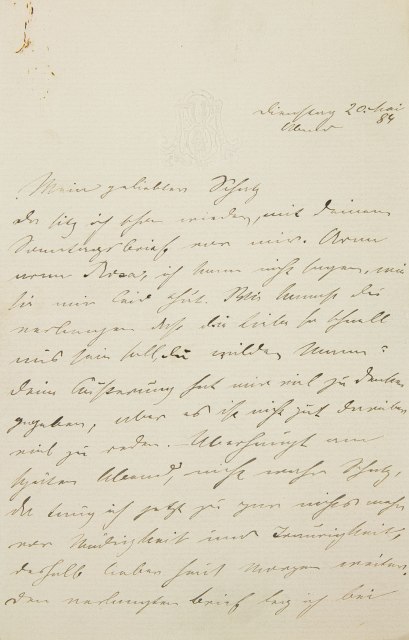 Dienstag 20. Mai
Abends 84
Mein geliebter Schatz
da sitz ich schon wieder, mit Deinem
Sonntagsbrief vor mir. Arme
arme Rosa, ich kann nicht sagen, wie
sie mir leid thut. Wie kannst du
verlangen daß die Liebe so schnell
aus sein soll, du wilder Mann?
Deine Äußerung hat mir viel zu denken
gegeben, aber es ist nicht gut darüber
viel zu reden. Überhaupt am
späten Abend, nicht wahr Schatz,
da taug ich jetzt zu gar nichts mehr
vor Müdigkeit und Traurigkeit,
deshalb lieber heut Morgen weiter.
Den verlangten Brief leg ich bei